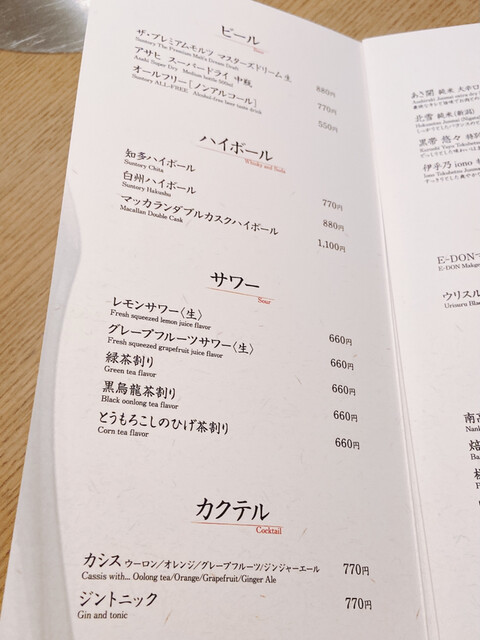 ビール
Beer
ザ・プレミアムモルツ マスターズドリーム 生 880円
Suntory The Premium Malt's Dream Draft
アサヒ スーパードライ 中瓶 770円
Asahi Super Dry Medium bottle 500ml
オールフリー［ノンアルコール］ 550円
Suntory ALL-FREE Alcohol-free beer taste drink
ハイボール
Whisky and Soda
知多ハイボール 770円
Suntory Chita
白州ハイボール 880円
Suntory Hakushu
マッカランダブルカスクハイボール 1,100円
Macallan Double Cask
サワー
Sour
レモンサワー〈生〉 660円
Fresh squeezed lemon juice flavor
グレープフルーツサワー〈生〉 660円
Fresh squeezed grapefruit juice flavor
緑茶割り 660円
Green tea flavor
黒烏龍茶割り 660円
Black oonlong tea flavor
とうもろこしのひげ茶割り 660円
Corn tea flavor
カクテル
Cocktail
カシス ウーロン/オレンジ/グレープフルーツ/ジンジャーエール 770円
Cassis with... Oolong tea/Orange/Grapefruit/Ginger Ale
ジントニック 770円
Gin and tonic
あさ開 純米 大辛口
北雪 純米(新潟)
黒帯 悠々 特別
伊乎乃 iono 特
E-DONマ
E-DON Makge
ウリスル
Urisuru Bla
南高
Nank
焙
Ba